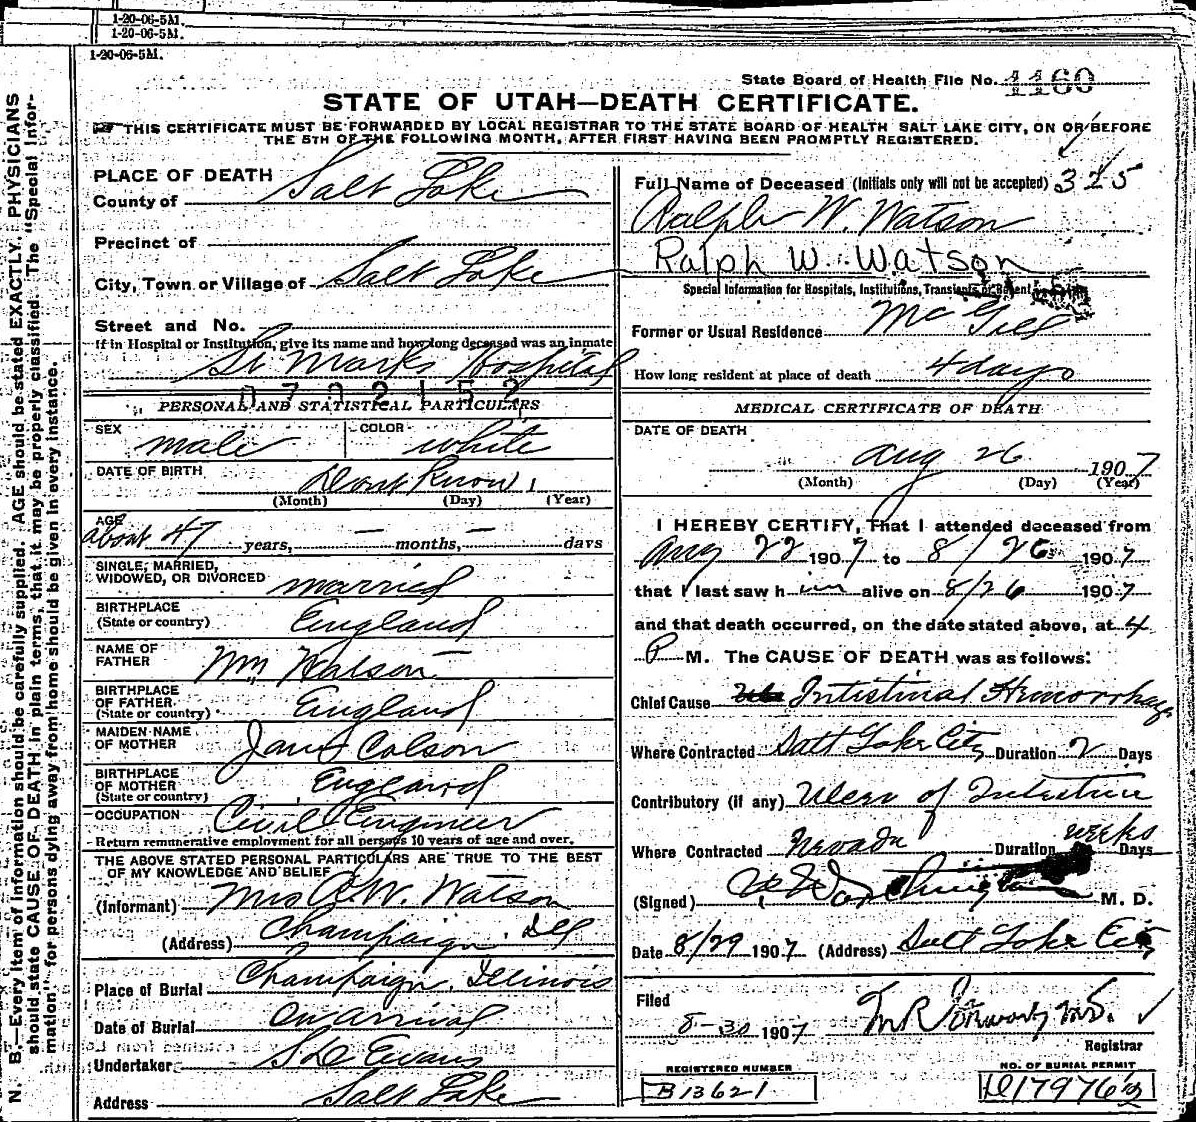 1-20-06-5M.
1-20-06-5M.
1-20-06-5M.
N. B.—Every item of information should be carefully supplied. AGE should be stated EXACTLY. PHYSICIANS
should state CAUSE OF DEATH in plain terms, that it may be properly classified. The "Special Infor-
mation" for persons dying away from home should be given in every instance.
State Board of Health File No. 1160
STATE OF UTAH—DEATH CERTIFICATE.
THIS CERTIFICATE MUST BE FORWARDED BY LOCAL REGISTRAR TO THE STATE BOARD OF HEALTH SALT LAKE CITY, ON OR BEFORE
THE 5TH OF THE FOLLOWING MONTH, AFTER FIRST HAVING BEEN PROMPTLY REGISTERED.
PLACE OF DEATH
County of Salt Lake
Precinct of
City, Town or Village of Salt Lake
Street and No.
If in Hospital or Institution, give its name and how long deceased was an inmate
St Marks Hospital
0702152
PERSONAL AND STATISTICAL PARTICULARS
SEX male COLOR white
DATE OF BIRTH Dont Know
(Month) (Day) (Year)
AGE about 47 years, — months, — days
SINGLE, MARRIED,
WIDOWED, OR DIVORCED married
BIRTHPLACE
(State or country) England
NAME OF
FATHER Wm Watson
BIRTHPLACE
OF FATHER
(State or country) England
MAIDEN NAME
OF MOTHER Jane Colson
BIRTHPLACE
OF MOTHER
(State or country) England
OCCUPATION Civil Engineer
Return remunerative employment for all persons 10 years of age and over.
THE ABOVE STATED PERSONAL PARTICULARS ARE TRUE TO THE BEST
OF MY KNOWLEDGE AND BELIEF
(Informant) Mrs R.W. Watson
(Address) Champaign. Ill
Place of Burial Champaign, Illinois
Date of Burial On arrival
Undertaker S D Evans
Address Salt Lake
Full Name of Deceased (Initials only will not be accepted) 325
Ralph W. Watson
Ralph W. Watson
Special Information for Hospitals, Institutions, Transients or Recent
Former or Usual Residence McGill
How long resident at place of death 4 days
MEDICAL CERTIFICATE OF DEATH
DATE OF DEATH
Aug 26 1907
(Month) (Day) (Year)
I HEREBY CERTIFY, That I attended deceased from
Aug 22 1907 to 8/26 1907
that I last saw him alive on 8/26 1907
and that death occurred, on the date stated above, at 4
P M. The CAUSE OF DEATH was as follows:
Chief Cause Intestinal Hemorrhage
Where Contracted Salt Lake City Duration 2 Days
Contributory (if any) Ulcer of Intestine
Where Contracted Nevada Duration weeks Days
(Signed) M. D.
Date 8/29 1907 (Address) Salt Lake City
Filed
8-30 1907
Registrar
REGISTERED NUMBER
B13621
NO. OF BURIAL PERMIT
D17976